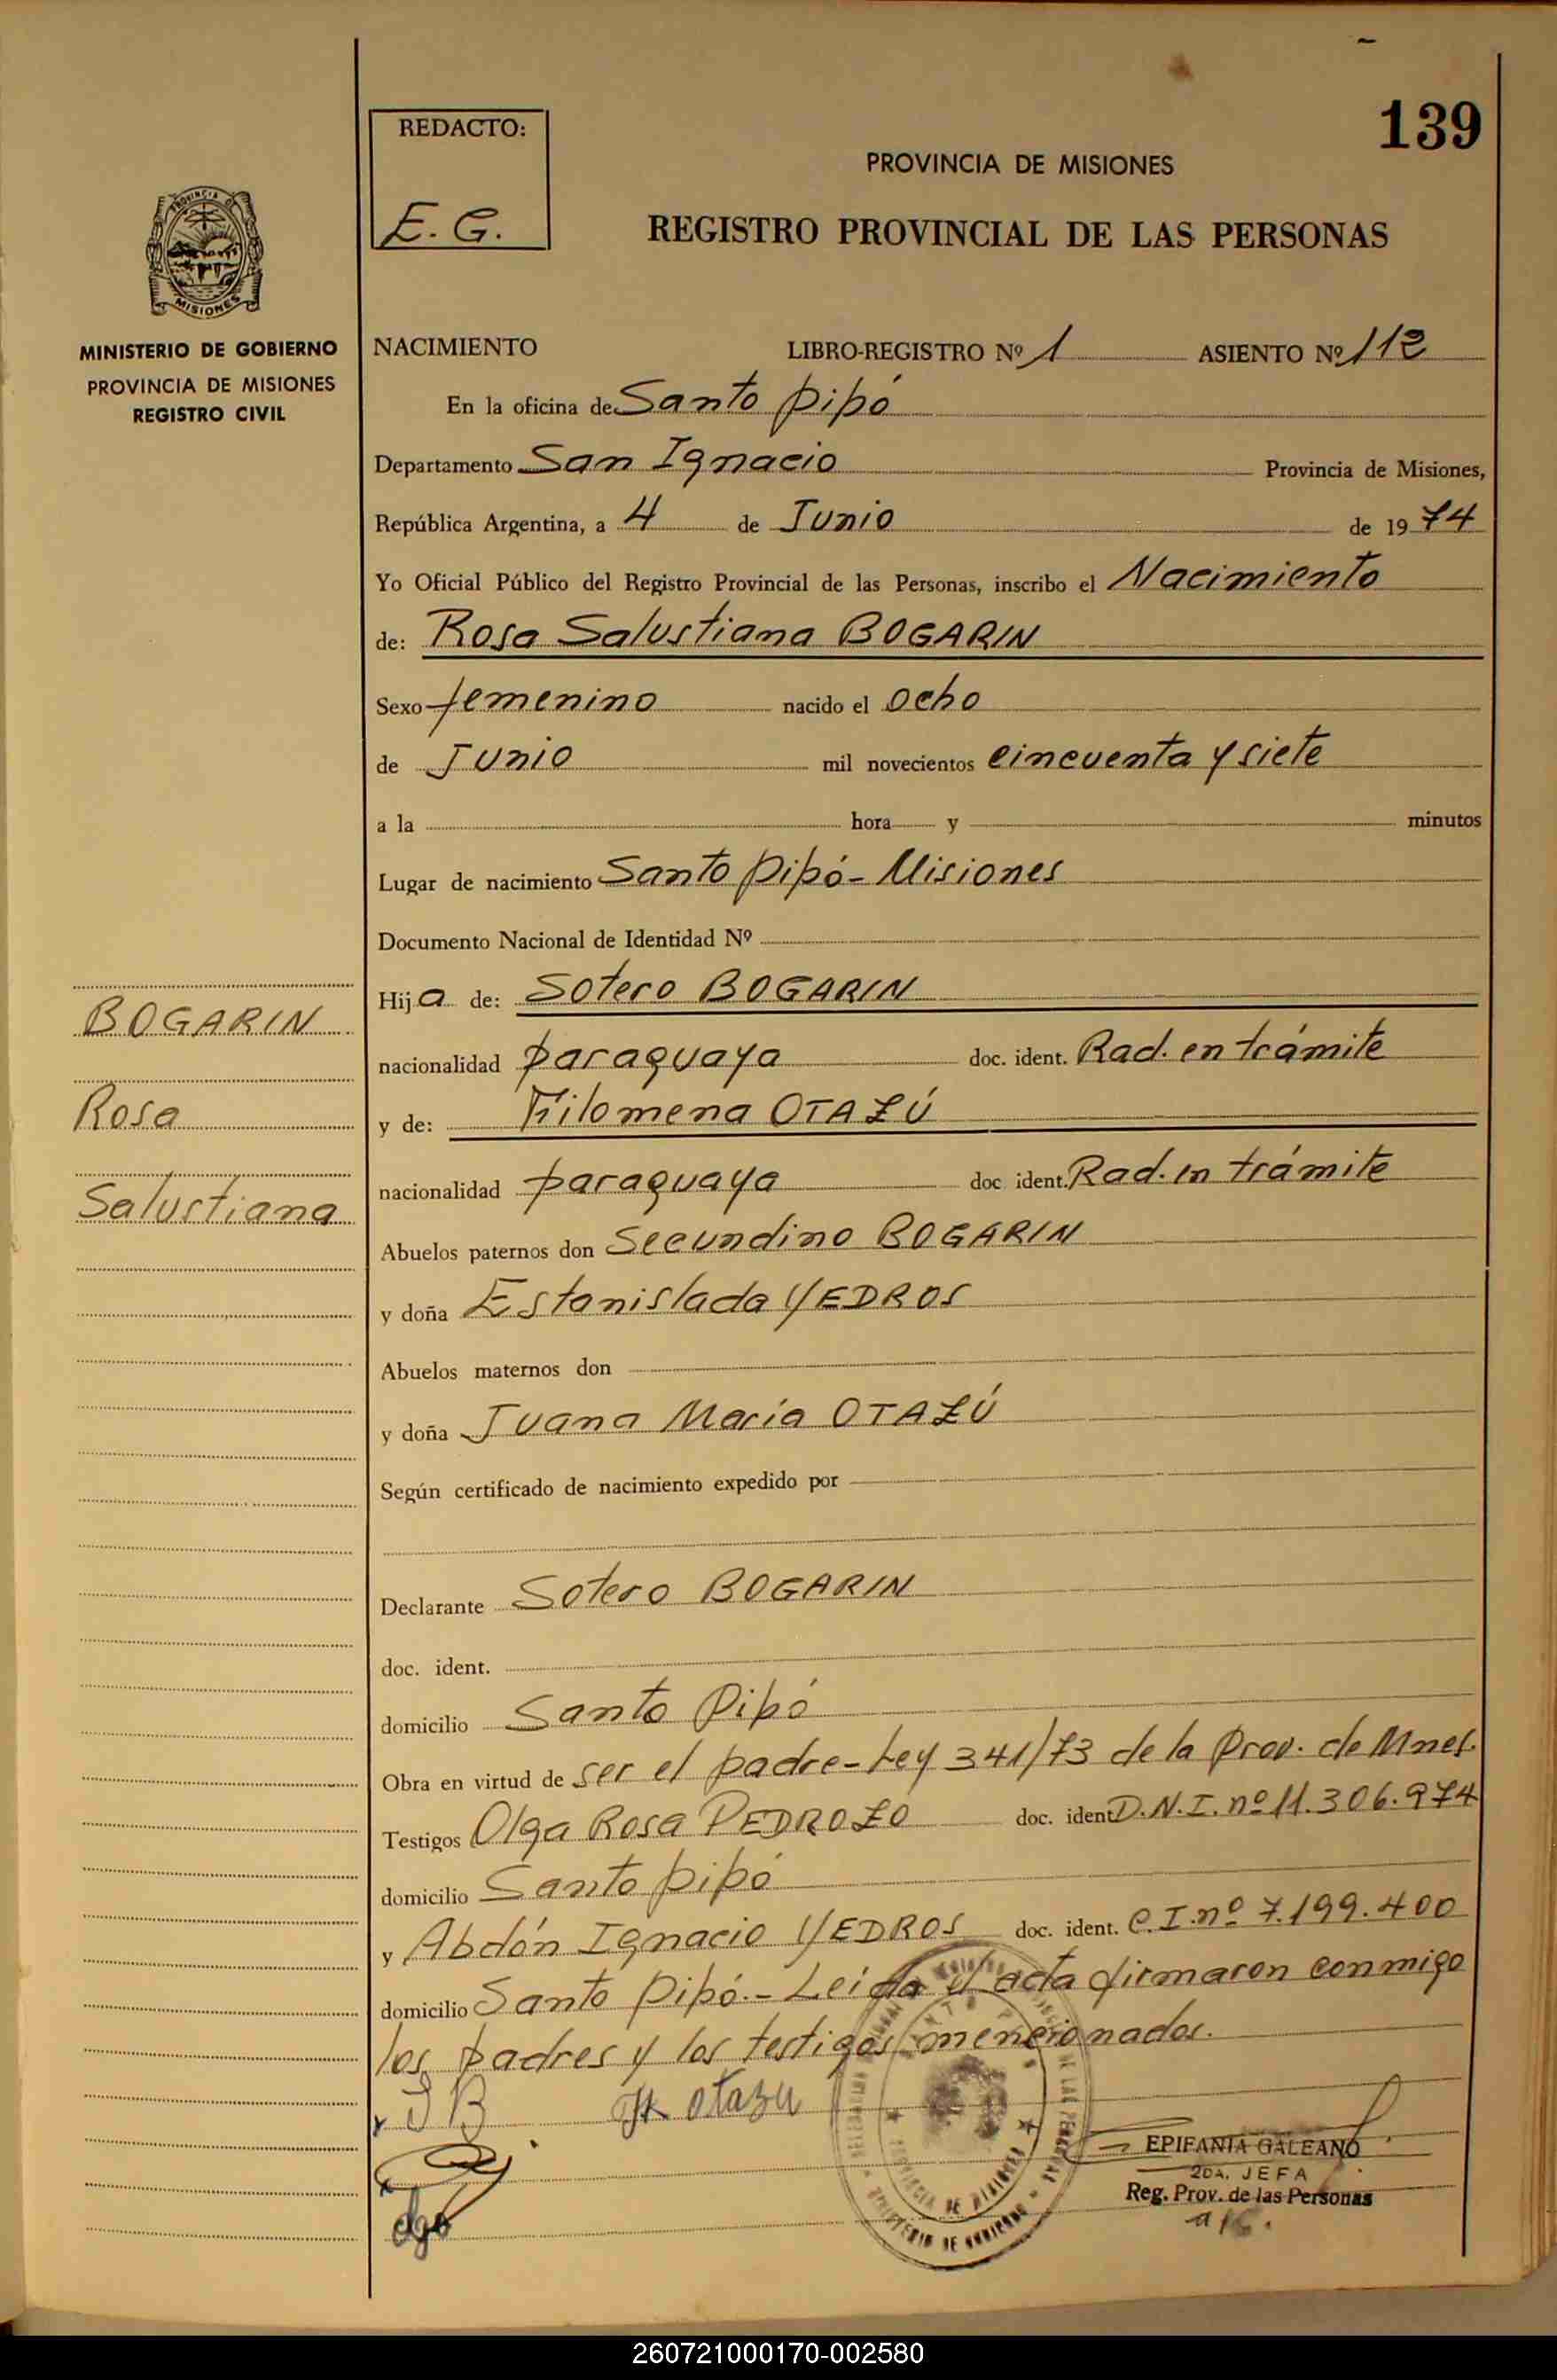 139
REDACTO:
E. G.
PROVINCIA DE MISIONES
REGISTRO PROVINCIAL DE LAS PERSONAS
MISIONES
MINISTERIO DE GOBIERNO
PROVINCIA DE MISIONES
REGISTRO CIVIL
NACIMIENTO LIBRO-REGISTRO Nº 1 ASIENTO Nº 112
En la oficina de Santo Pipó
Departamento San Ignacio Provincia de Misiones,
República Argentina, a 4 de Junio de 1974
Yo Oficial Público del Registro Provincial de las Personas, inscribo el Nacimiento
de: Rosa Salustiana BOGARIN
Sexo femenino nacido el ocho
de Junio mil novecientos cincuenta y siete
a la hora y minutos
Lugar de nacimiento Santo Pipó - Misiones
Documento Nacional de Identidad Nº
Hija de: Sotero BOGARIN
nacionalidad paraguaya doc. ident. Rad. en trámite
y de: Filomena OTAZÚ
nacionalidad paraguaya doc ident. Rad. en trámite
Abuelos paternos don Secundino BOGARIN
y doña Estanislada YEDROS
Abuelos maternos don
y doña Juana María OTAZÚ
Según certificado de nacimiento expedido por
Declarante Sotero BOGARIN
doc. ident.
domicilio Santo Pipó
Obra en virtud de ser el padre - Ley 341/73 de la Prov. de Mnes.
Testigos Olga Rosa PEDROZO doc. ident D.N.I. nº 11.306.974
domicilio Santo Pipó
y Abdón Ignacio YEDROS doc. ident. C.I. nº 7.199.400
domicilio Santo Pipó.- Leída el acta firmaron conmigo
los padres y los testigos mencionados.
BOGARIN
Rosa
Salustiana
S B otazu
EPIFANIA GALEANO
2DA. JEFA
Reg. Prov. de las Personas
a/c.
PROVINCIA DE MISIONES
MINISTERIO DE GOBIERNO
260721000170-002580